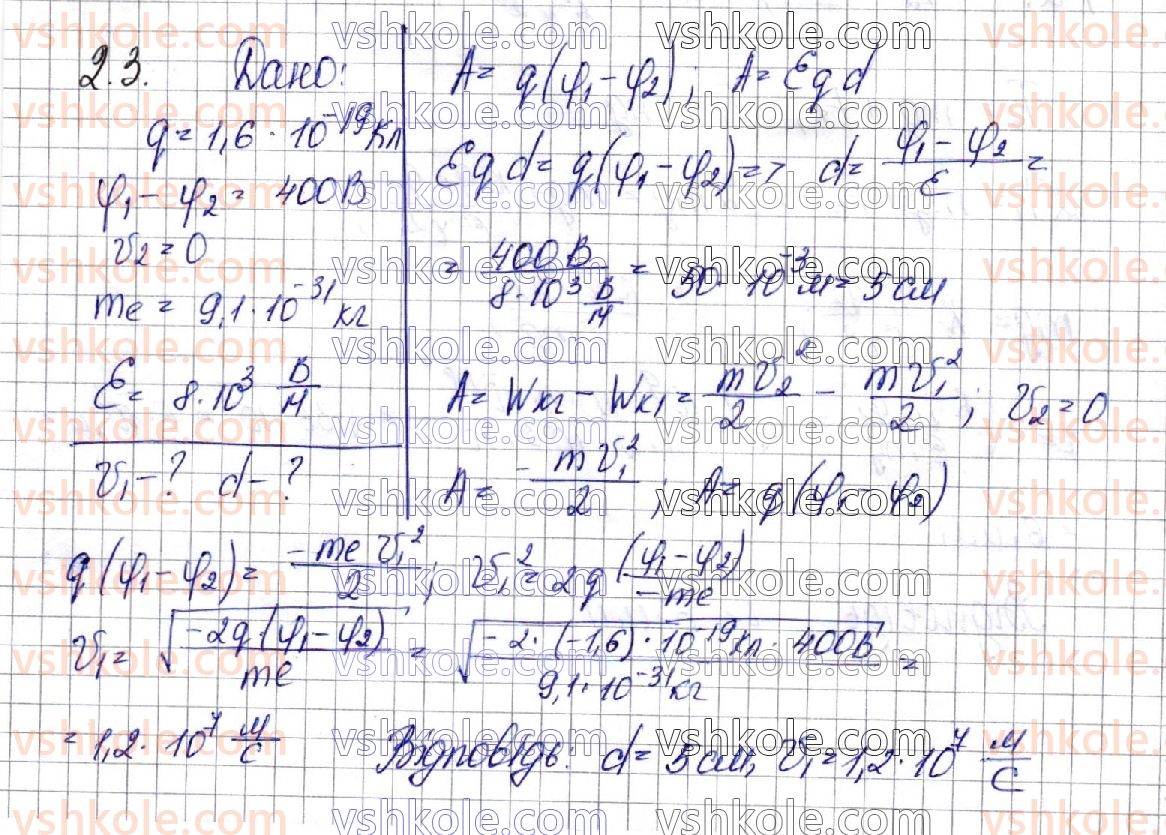 2.3. Дано:
q = 1,6 · 10⁻¹⁹ Кл
φ₁ − φ₂ = 400В
v₂ = 0
me = 9,1 · 10⁻³¹ кг
E = 8 · 10³ В/м
v₁ − ? d − ?
A = q(φ₁ − φ₂); A = Eqd
Eqd = q(φ₁ − φ₂) => d = (φ₁ − φ₂)/E =
= 400 В / 8 · 10³ В/м = 50 · 10⁻³ м = 5 см
A = Wк₂ − Wк₁ = mv₂²/2 − mv₁²/2; v₂ = 0
A = −mv₁²/2; A = q(φ₁ − φ₂)
q(φ₁ − φ₂) = −me v₁²/2; v₁² = 2q (φ₁ − φ₂)/−me
v₁ = √(−2q(φ₁ − φ₂)/me) = √(−2 · (−1,6) · 10⁻¹⁹ Кл · 400В / 9,1 · 10⁻³¹ кг) =
= 1,2 · 10⁷ м/с Відповідь: d = 5 см, v₁ = 1,2 · 10⁷ м/с